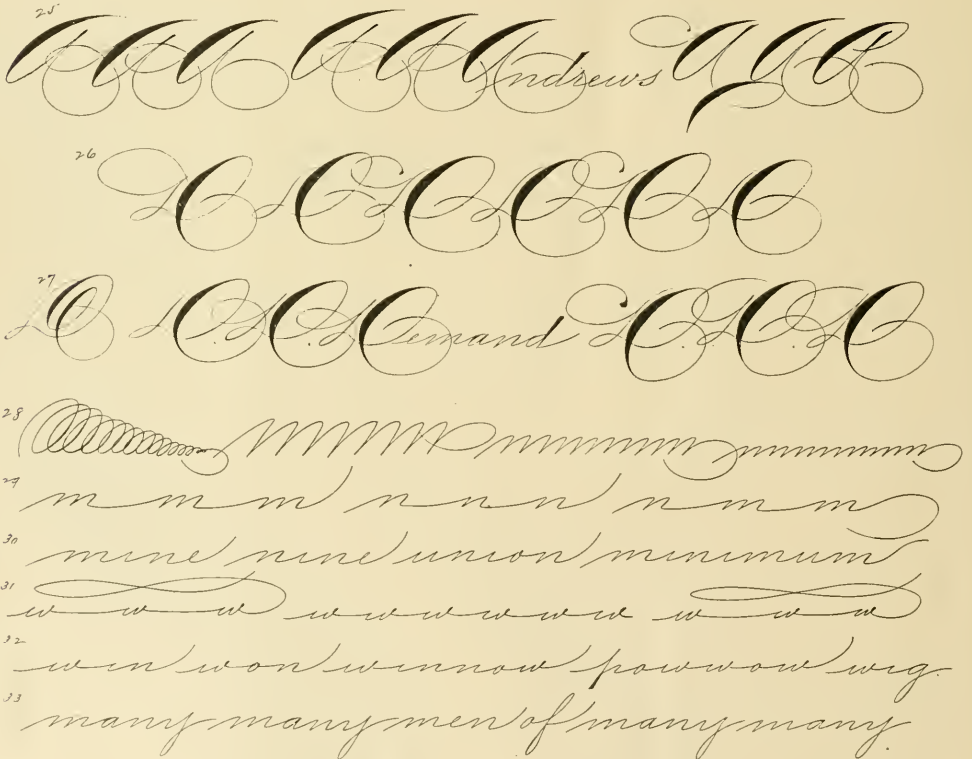 25 A A A A A Andrews A A A
26 D D D D D D
27 D D. D. Demand D. D. D
28
29 m m m n n n n m m
30 mine nine union minimum
31 w w w w w w w w w w w w
32 win won winnow powwow wig.
33 many many men of many many.